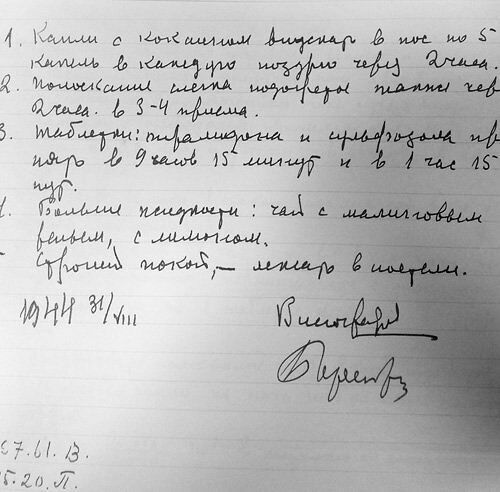 1. Капли с кокаином впускать в нос по 5
капель в каждую ноздрю через 2 часа.
2. Полоскание слегка подогретое также чер
2 часа. в 3-4 приема.
3. Таблетки: пирамидона и сульфазола при
нять в 9 часов 15 минут и в 1 час 15
нут.
Больше жидкости: чай с малиновым
реньем, с лимоном.
Строгий покой, – лежать в постели.
1944 31/VIII
Виноградов
67.61.В.
5.20.П.